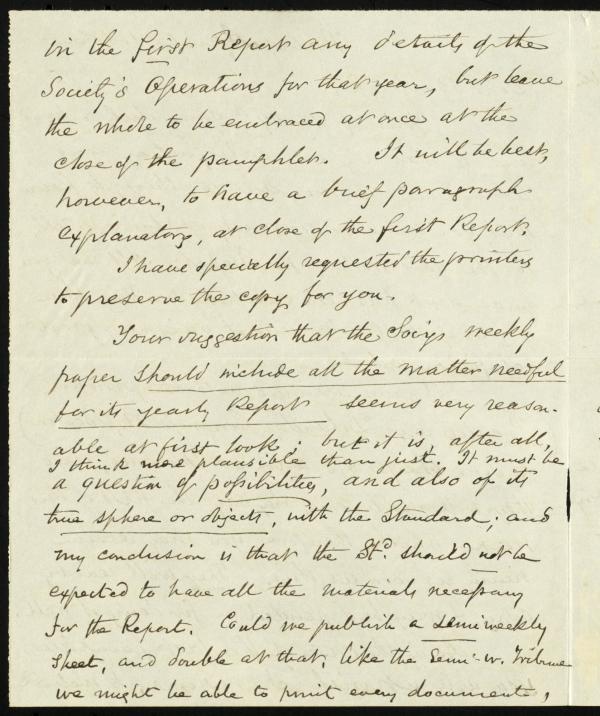 in the first Report any details of the
Society's Operations for that year, but leave
the whole to be embraced at once at the
close of the pamphlet. It will be best,
however, to have a brief paragraph
explanatory, at close of the first Report.
I have specially requested the printers
to preserve the copy for you.
Your suggestion that the Soc'y's weekly
paper should include all the matter needful
for its yearly Report seems very reason-
able at first look; but it is, after all,
I think more plausible than just. It must be
a question of possibilities, and also of its
true sphere or objects, with the Standard; and
my conclusion is that the Std. should not be
expected to have all the materials necessary
for the Report. Could we publish a semiweekly
sheet, and double at that, like the Semi-w. Tribune
we might be able to print every document,